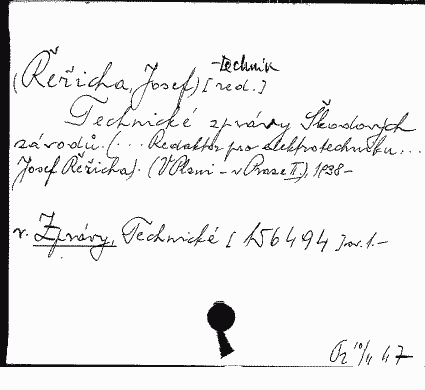 -technik
(Řeřicha, Josef) [red.]
Technické zprávy Škodových
závodů. (... Redaktor pro elektrotechniku...
Josef Řeřicha). (V Plzni - v Praze II), 1938-
v. Zprávy, Technické [156494] roč. 1.-
10/11 47